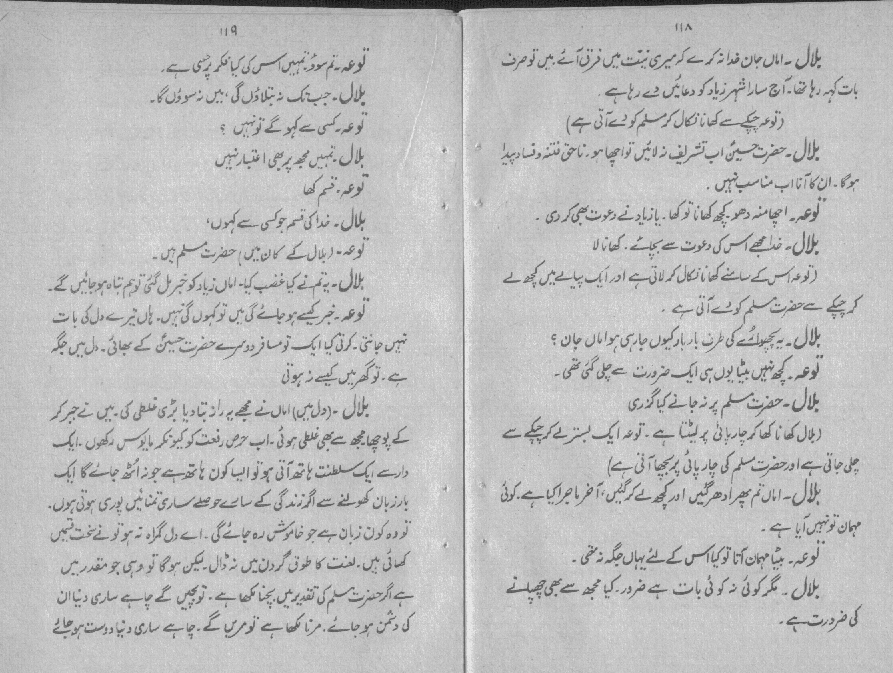 ۱۱۸
بلال۔ اماں جان خدا نہ کرے کہ میری نیت میں فرق آئے میں تو صرف
بات کہہ رہا تھا۔ آج سارا شہر زیاد کو دعائیں دے رہا ہے
(توعہ چپکے سے کھانا نکال کر مسلم کو دے آتی ہے)
بلال۔ حضرت حسینؑ اب تشریف نہ لائیں تو اچھا ہو۔ ناحق فتنہ و فساد پیدا
ہوگا۔ ان کا آنا اب مناسب نہیں۔
توعہ۔ اچھا منہ دھو۔ کچھ کھانا تو کھا۔ یا زیاد نے دعوت بھی کردی۔
بلال۔ خدا مجھے اس کی دعوت سے بچائے۔ کھانا لا
(توعہ اس کے سامنے کھانا نکال کر لاتی ہے اور ایک پیالے میں کچھ لے
کر چپکے سے حضرت مسلم کو دے آتی ہے۔
بلال۔ یہ پچھواڑے کی طرف بار بار کیوں جارہی ہو اماں جان؟
توعہ۔ کچھ نہیں بیٹا یوں ہی ایک ضرورت سے چلی گئی تھی۔
بلال۔ حضرت مسلم پر نہ جانے کیا گزری
(بلال کھانا کھا کر چارپائی پر لیٹتا ہے۔ توعہ ایک بستر لے کر چپکے سے
چلی جاتی ہے اور حضرت مسلم کی چارپائی پر بچھا آتی ہے)
بلال۔ اماں تم پھر ادھر گئیں اور کچھ لے کر گئیں، آخر ماجرا کیا ہے۔ کوئی
مہمان تو نہیں آیا ہے۔
توعہ۔ بیٹا مہمان آتا تو کیا اس کے لئے یہاں جگہ نہ تھی۔
بلال۔ مگر کوئی نہ کوئی بات ہے ضرور۔ کیا مجھ سے بھی چھپانے
کی ضرورت ہے۔
۱۱۹
توعہ۔ تم سوؤ، تمہیں اس کی کیا فکر پڑی ہے۔
بلال۔ جب تک نہ بتلاؤں گی، میں نہ سوؤں گا۔
توعہ۔ کسی سے کہو گے تو نہیں؟
بلال۔ تمہیں مجھ پر بھی اعتبار نہیں
توعہ۔ قسم کھا
بلال۔ خدا کی قسم جو کسی سے کہوں،
توعہ۔ (بلال کے کان میں) حضرت مسلم ہیں۔
بلال۔ یہ تم نے کیا غضب کیا۔ اماں زیاد کو خبر مل گئی تو ہم تباہ ہوجائیں گے۔
توعہ۔ خبر کیسے ہوجائے گی میں تو کہوں گی نہیں۔ ہاں تیرے دل کی بات
نہیں جانتی۔ کرتی کیا ایک تو مسافر دوسرے حضرت حسینؑ کے بھائی۔ دل میں جگہ
ہے۔ تو گھر میں کیسے نہ ہوتی
بلال۔ (دل میں) اماں نے مجھے یہ راز بتادیا بڑی غلطی کی۔ میں نے جبر کر
کے پوچھا مجھ سے بھی غلطی ہوئی۔ اب حرص رفعت کو کیونکر مایوس رکھوں۔ ایک
وار سے ایک سلطنت ہاتھ آتی ہو تو ایسا کون ہاتھ ہے جو نہ اٹھ جائے گا ایک
بار زبان کھولنے سے اگر زندگی کے سارے حوصلے ساری تمنائیں پوری ہوتی ہوں۔
تو وہ کون زبان ہے جو خاموش رہ جائے گی۔ اے دل گمراہ نہ ہو تو نے سخت قسمیں
کھائی ہیں۔ لعنت کا طوق گردن میں نہ ڈال۔ لیکن ہوگا تو وہی جو مقدر میں
ہے اگر حضرت مسلم کی تقدیر میں بچنا لکھا ہے۔ تو بچیں گے چاہے ساری دنیا ان
کی دشمن ہوجائے۔ مرنا لکھا ہے تو مریں گے۔ چاہے ساری دنیا دوست ہوجائے